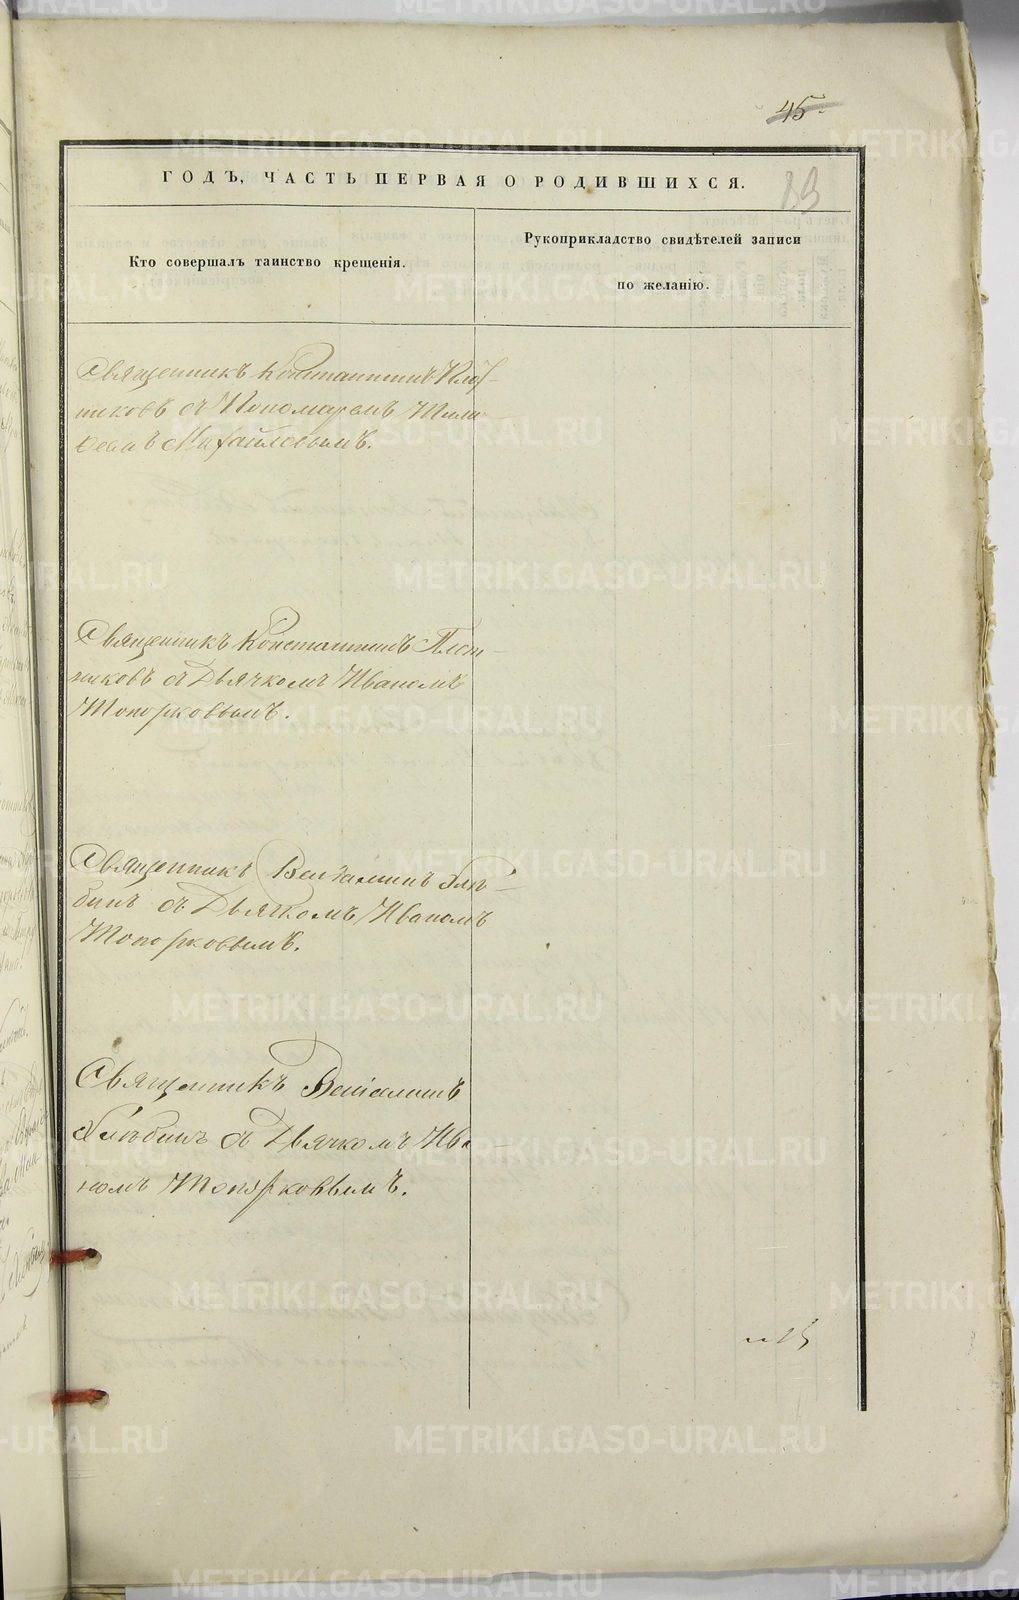 45.
ГОДЪ, ЧАСТЬ ПЕРВАЯ О РОДИВШИХСЯ.
Кто совершалъ таинство крещенія.
Рукоприкладство свидѣтелей записи
по желанію.
Священникъ Константинъ Плот-
никовъ съ Пономаремъ
Михайловымъ.
Священникъ Константинъ Плот-
никовъ съ Дьячкомъ Иваномъ
Топорковымъ.
Священникъ Веніаминъ Хлѣ-
бинъ съ Дьячкомъ Иваномъ
Топорковымъ.
Священникъ Веніаминъ
Хлѣбинъ съ Дьячкомъ Ива
номъ Топорковымъ.
METRIKI.GASO-URAL.RU